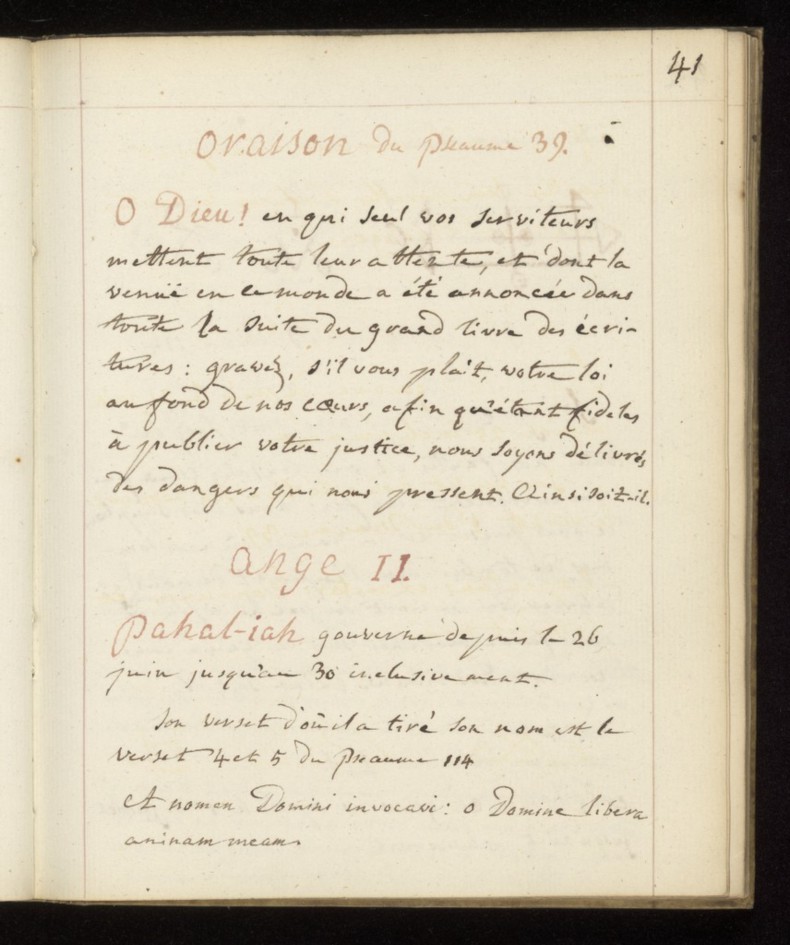 41
Oraison du pseaume 39.
O Dieu! en qui seul vos serviteurs
mettent toute leur attente, et dont la
venuë en ce monde a été annoncée dans
toute la suite du grand livre des écri-
tures : gravez, s'il vous plait, votre loi
au fond de nos cœurs, afin qu'étant fideles
à publier votre justice, nous soyons délivrés
des dangers qui nous pressent. Ainsi soit-il.
Ange II.
Pahal-iah gouverne depuis le 26
juin jusqu'au 30 inclusivement.
Son verset d'où il a tiré son nom est le
verset 4 et 5 du pseaume 114
Et nomen Domini invocavi: o Domine libera
animam meam